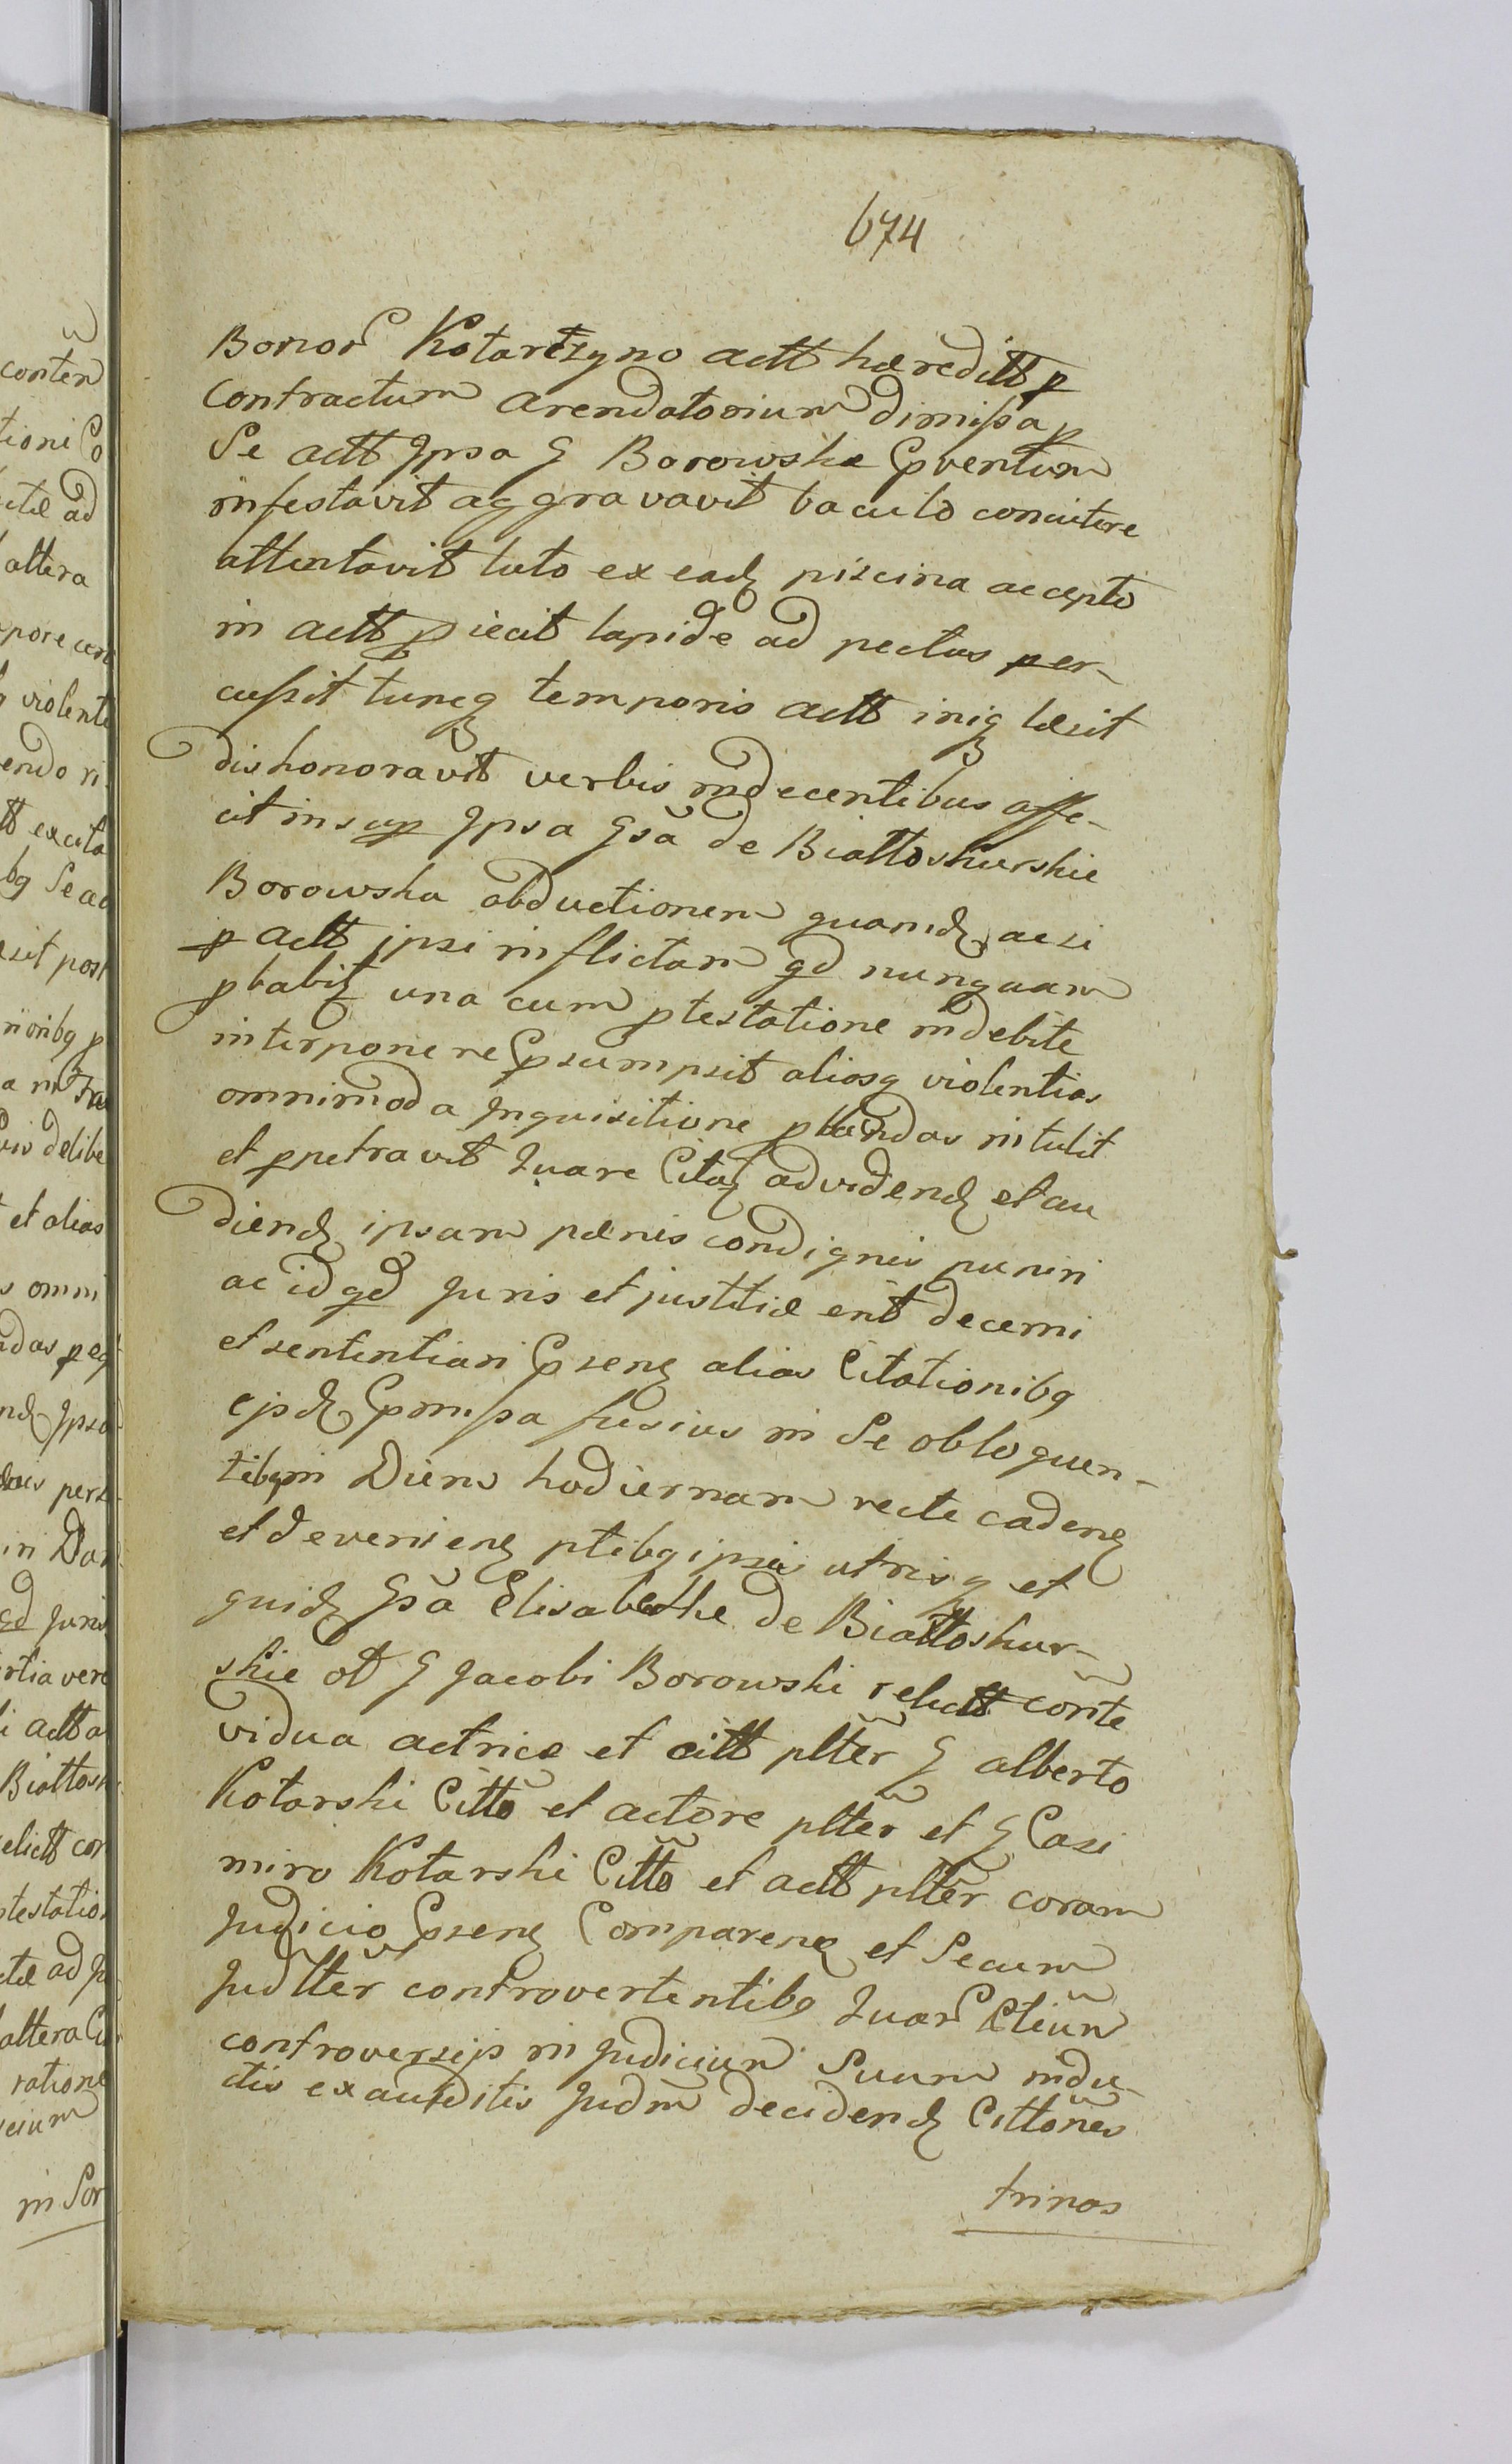 674
Bonor Kotarczyno actt hæreditt p
contractum arendatorium dimissa p
Se actt Ipsa G Borowska pventum
infestavit aggravavit baculo concutere
attentavit luto ex eadq piscina accepto
in actt piecit lapide ad pectus per-
cussit tuncq temporis actt iniq læsit
dishonoravit verbis indecentibus affe-
cit insup Ipsa Gsã de Białłoskurskie
Borowska obductionem quamdq acsi
p actt ipsi inflictam qd nunquam
pbabitq una cum ptestatione indebite
interponere psumpsit aliosq violentias
omnimoda Inquisitione pbandas intulit
et ppetravit Quare Citatq ad videndq et au
diendq ipsam pænis condignis puniri
ac id qd Juris et justitiæ erit decerni
et sententiari psenq alias Citationibq
ejsdq pmissa fusius in Se obloquen-
tibq in Diem hodiernam recte cadenq
et devenienq ptibq ipsis utrisq et
quidq Gsã Elisabethe de Białłoskur-
skie ol G Jacobi Borowski relictt conte
vidua actrice et citt plter G Alberto
Kotarski Citto et actore plter et G Casi
miro Kotarski Citto et actt plter coram
Judicio psenq Comparenq et Secum
Judlter controvertentibq Quar Ptium
controversijs in Judicium Suum indu-
ctis exauditis Judm decidendq Cittones
trinas
conten
tioni Co
ad
altera
pore
violent
endo
excita
bq Se
post
p
delibe
et alias
omni
das
Ipsa
in
qd Juris
vero
actt
Białłosk
relictt con
testation
ad
altera
ratione
in For